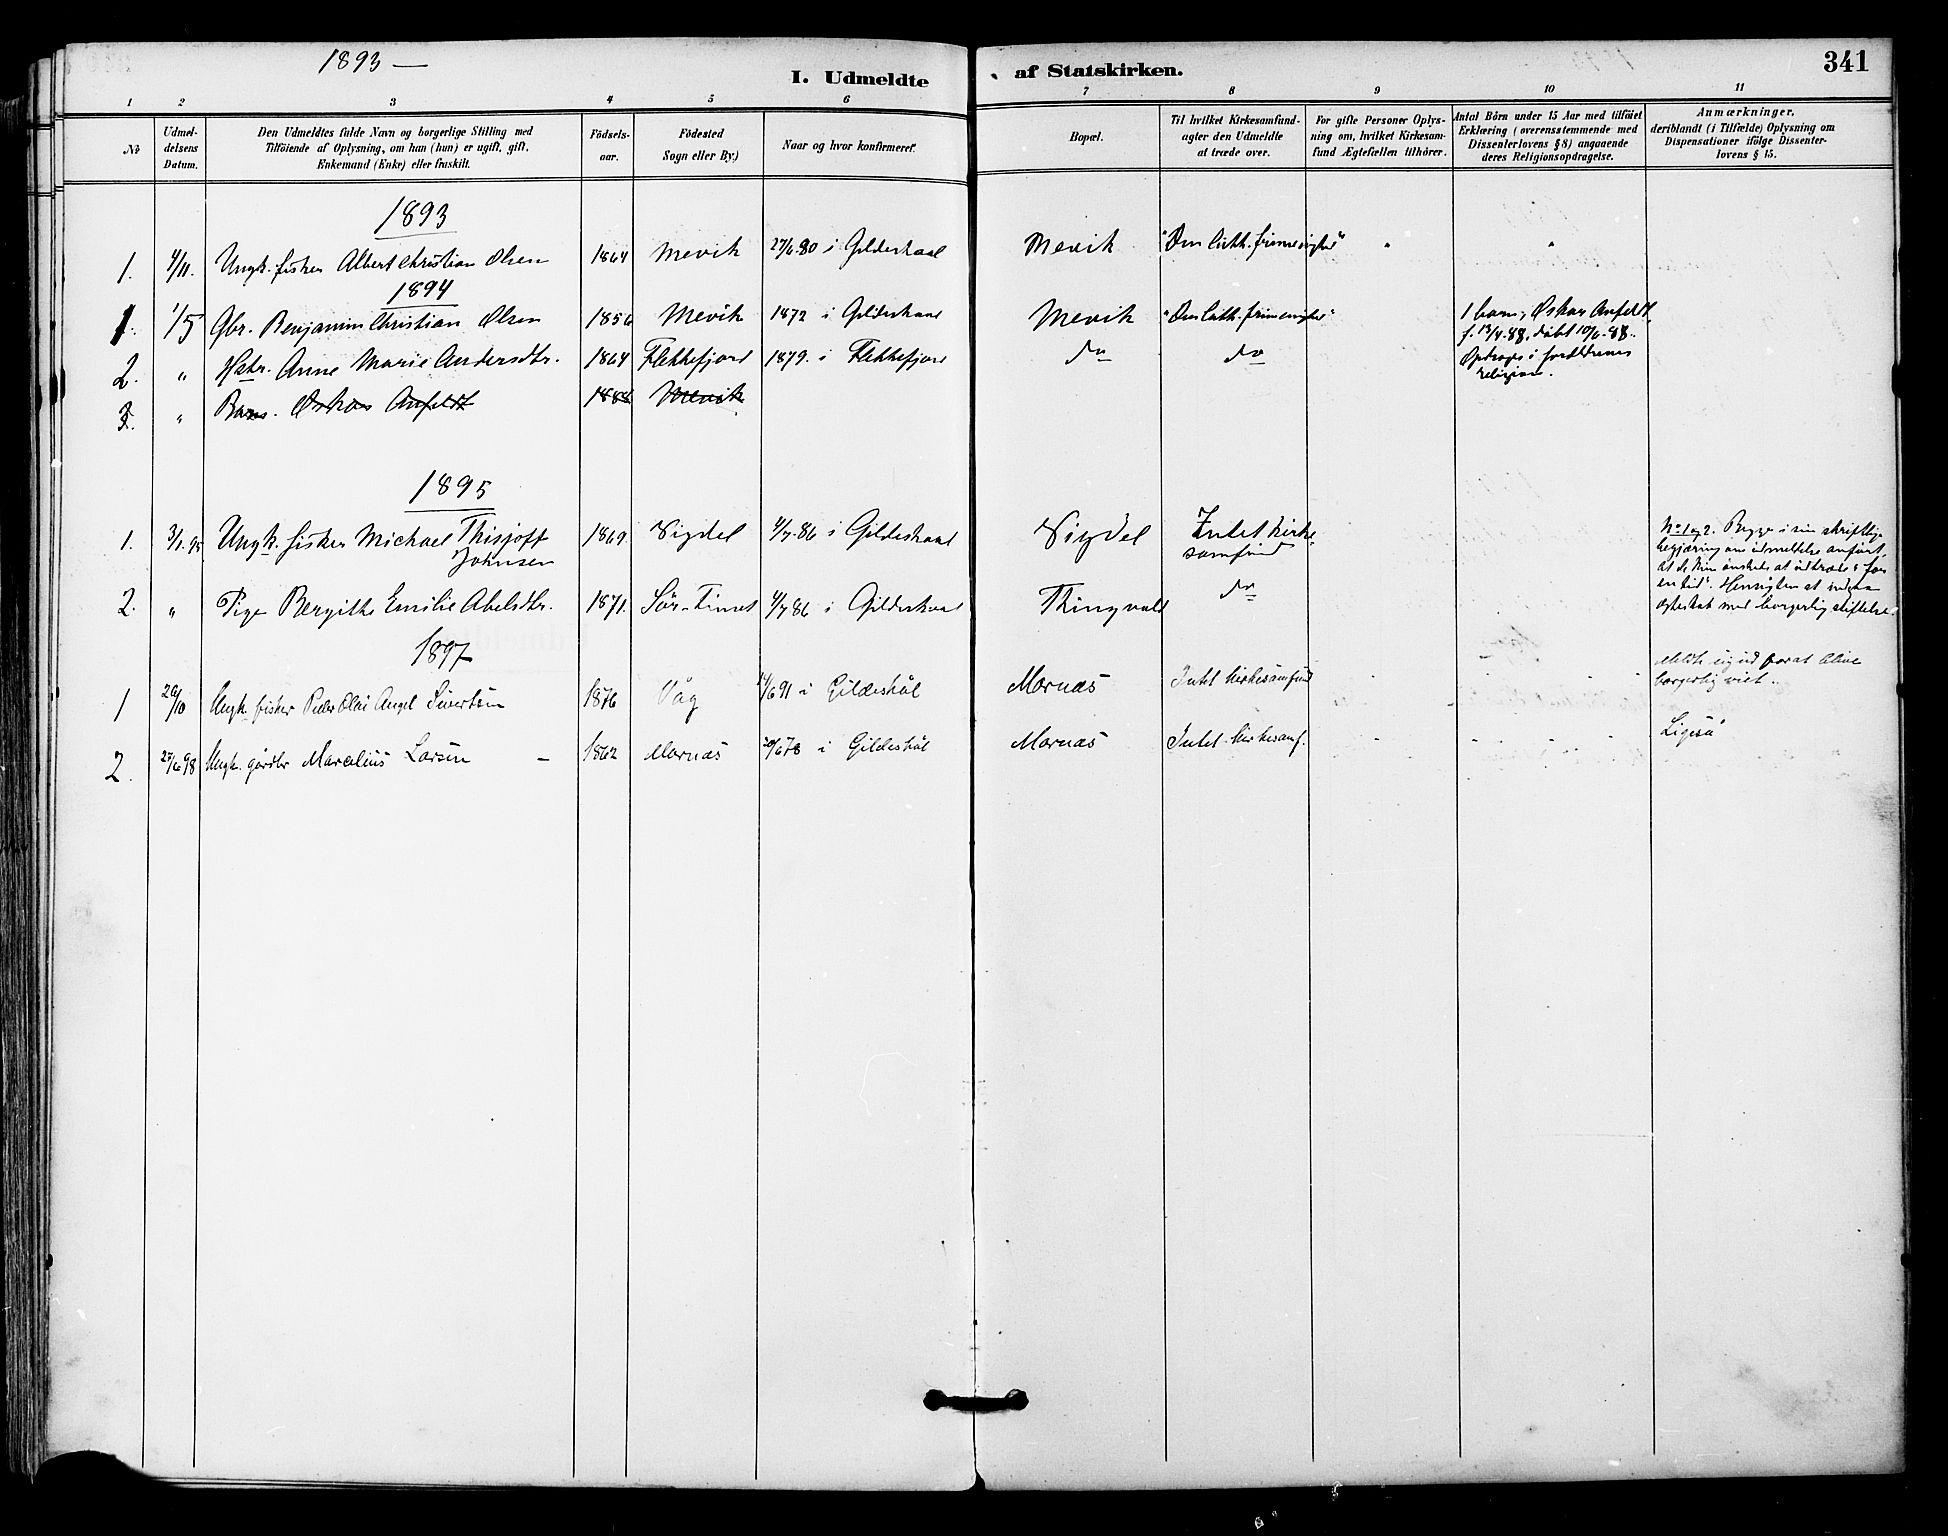 1893 —
I. Udmeldte af Statskirken.
341
1 2 3 4 5 6 7 8 9 10 11
No
Udmel-
delsens
Datum.
Den Udmeldtes fulde Navn og borgerlige Stilling med
Tilföiende af Oplysning, om han (hun) er ugift, gift,
Enkemand (Enke) eller fraskilt.
Födsels-
aar.
Födested
Sogn eller By.)
Naar og hvor konfirmeret.
Bopæl.
Til hvilket Kirkesamfund-
agter den Udmeldte
at træde over.
For gifte Personer Oplys-
ning om, hvilket Kirkesam-
fund Ægtefællen tilhörer.
Antal Börn under 15 Aar med tilföiet
Erklæring (overensstemmende med
Dissenterlovens § 8) angaaende
deres Religionsopdragelse.
Anmærkninger.
deriblandt (i Tilfælde) Oplysning om
Dispensationer ifölge Dissenter-
lovens § 15.
1893
1. 4/11. Ungk. fisker Albert Christian Olsen 1864 Mevik 27/6 80 i Gildeskaal Mevik "Den luth. frimenighed" " "
1894
1. 1/5 Gbr. Benjamin Christian Olsen 1856 Mevik 1872 i Gildeskaal Mevik "Den luth. frimenighed" 1 barn, Oskar Anfeldt,
f. 13/4 88, döbt 10/6 88.
2. " Hstr. Anne Marie Andersdtr. 1864 Flekkefjord 1879. i Flekkefjord do do Opdrages i forældrenes
religion.
3. " Barn. Oskar Anfeldt 1888 Mevik
1895
1. 3/1.95 Ungk. fisker Michael Thisjoff
Johnsen 1869. Sigdel 4/7.86 i Gildeskaal Sigdel Intet kirke
samfund
No 1 og 2. Begge i sin skriftlige
begjæring om udmeldelse anført,
at de kun önskede at udtræde "for
en tid". Hensigten at indgaa
ægteskab med borgerlig stiftelse.
2. " Pige Bergitte Emilie Abelsdtr. 1871. Sör-Finnes 4/7 86 i Gildeskaal Thingvold do
1897
1 20/10 Ungk. fisker Peder Olai Angel Sivertsen 1876 Våg 14/6 91 i Gildeskål Mornæs Intet kirkesamfund Meldte sig ud for at blive
borgerlig viet.
2. 27/6 98 Ungk. gårdbr Marcelius Larsen — 1862 Mornæs 30/6 78 i Gildeskål Mornæs Intet kirkesamf. Ligeså